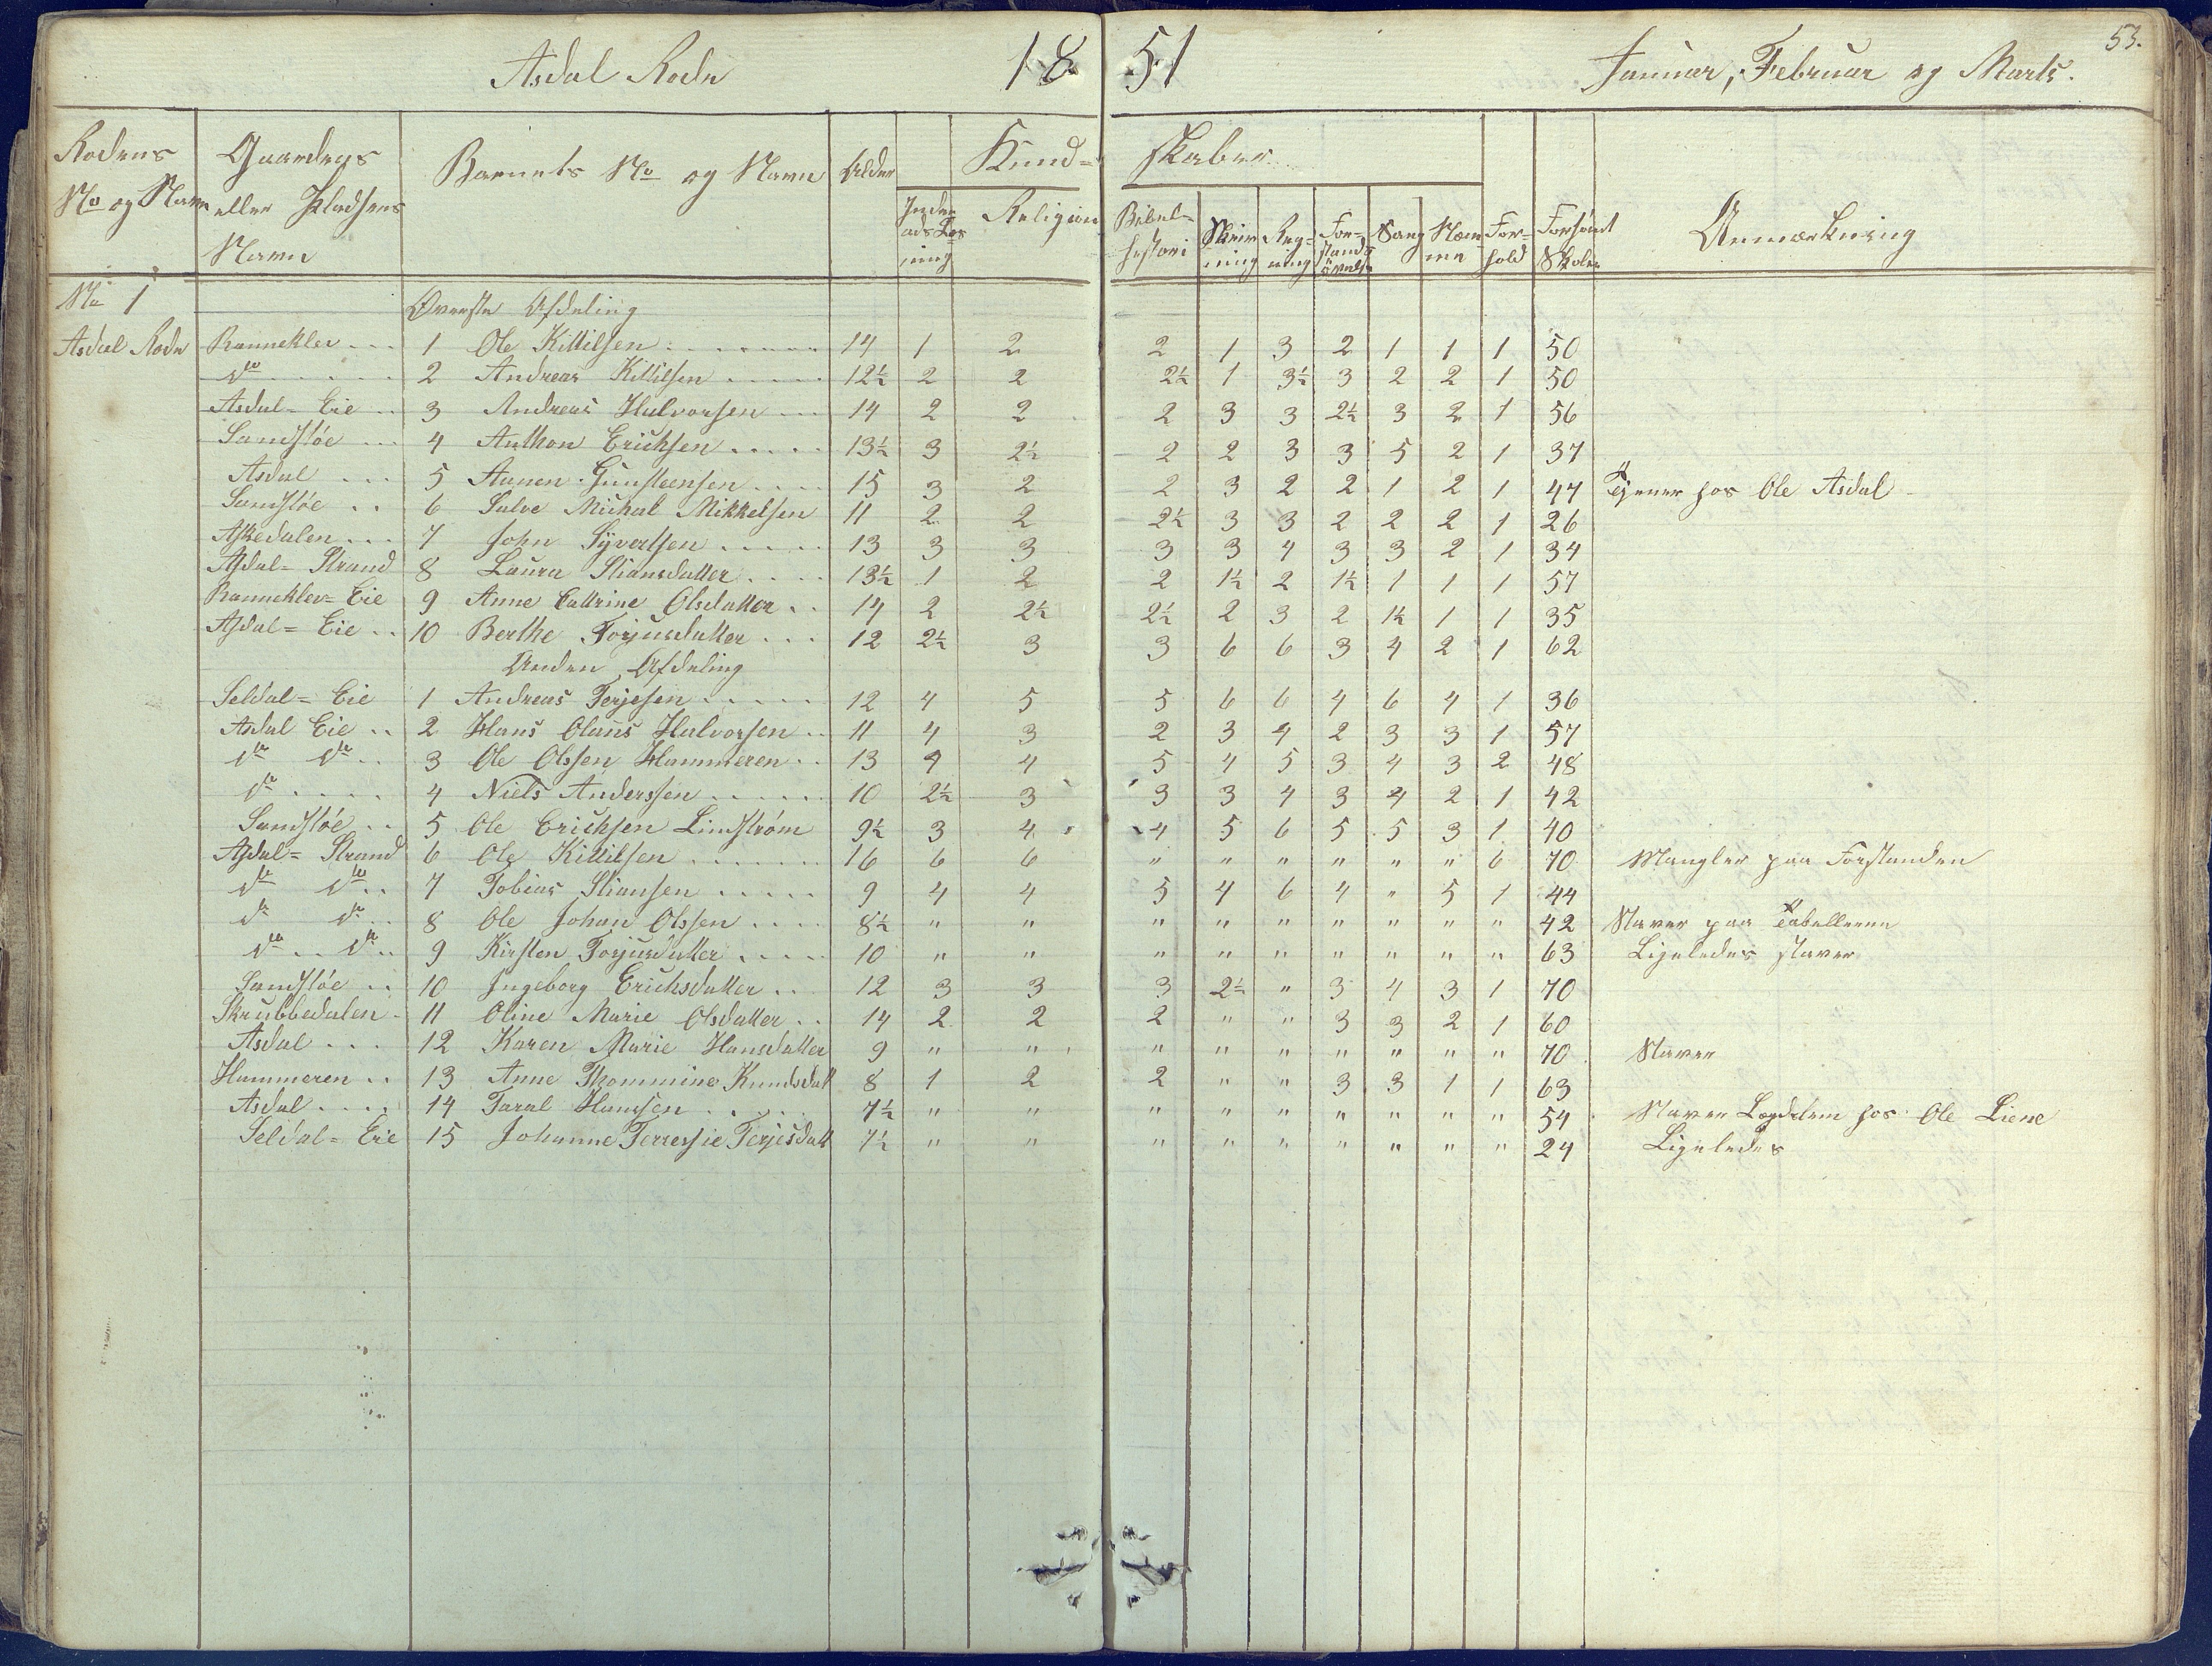 53.
Asdal Rode 1851 Januar, Februar og Marts.
Rodens No og Navn | Gaardens eller Pladsens Navn | Barnets No og Navn | Alder | Kundskaber | Forhold | Forsømt Skolen | Anmærkning
Indenads Læsning | Religion | Bibelhistori | Skrivning | Regning | Forstandsøvelse | Sang | Nemme
No 1 Øverste Afdeling
Asdal Rode Rannekler ... 1 Ole Kittilsen 14 1 2 2 1 3 2 1 1 1 50
do ... 2 Andreas Kittilsen 12½ 2 2 2½ 1 3½ 3 2 2 1 50
Asdal-Eie .. 3 Andreas Halvorsen 14 2 2 2 3 3 2½ 3 2 1 56
Sandsløe ... 4 Anthon Erichsen 13½ 3 2½ 2 2 3 3 5 2 1 37
Asdal ... 5 Aanen Gunsteensen 15 3 2 2 3 2 2 1 2 1 47 Tjener hos Ole Asdal
Sandsløe .. 6 Salve Michal Mikkelsen 11 2 2 2½ 3 3 2 2 2 1 26
Askedalen ... 7 John Syvertsen 13 3 3 3 3 4 3 3 2 1 34
Asdal-Strand 8 Laura Stiansdatter 13½ 1 2 2 1½ 2 1½ 1 1 1 57
Rannekler-Eie 9 Anne Cattrine Olsdatter .. 14 2 2½ 2½ 2 3 2 1½ 1 1 35
Asdal-Eie .. 10 Berthe Torjusdatter ... 12 2½ 3 3 6 6 3 4 2 1 62
Anden Afdeling
Seldal-Eie 1 Andreas Terjesen 12 4 5 5 6 6 4 6 4 1 36
Asdal Eie .. 2 Hans Olaus Halvorsen .. 11 4 3 2 3 4 2 3 3 1 57
do do .. 3 Ole Olssen Hammeren .. 13 4 4 5 4 5 3 4 3 2 48
do .... 4 Niels Anderssen 10 2½ 3 3 3 4 3 4 2 1 42
Sandsløe .. 5 Ole Erichsen Lindstrøm 9½ 3 4 4 5 6 5 5 3 1 40
Asdal-Strand 6 Ole Kittilsen 16 6 6 " " " " " " 6 70 Mangler paa Forstanden
do do .. 7 Tobias Stiansen 9 4 4 5 4 6 4 " 5 1 44
do do .. 8 Ole Johan Olssen 8½ " " " " " " " " " 42 Staver paa Tabellerne
do .. do .. 9 Kirsten Torjusdatter 10 " " " " " " " " " 63 Ligeledes staver
Sandsløe .. 10 Ingeborg Erichsdatter .. 12 3 3 3 2½ " 3 4 3 1 70
Skrubbedalen 11 Oline Marie Olsdatter .. 14 2 2 2 " " 3 3 2 1 60
Asdal ... 12 Karen Marie Hansdatter 9 " " " " " " " " " 70 Staver
Hammeren .. 13 Anne Thommine Knudsdatt 8 1 2 2 " " 3 3 1 1 63
Asdal .... 14 Taral Hanssen 7½ " " " " " " " " " 54 Staver hos Ole Liene
Seldal-Eie 15 Johanne Terressie Terjesdatt 7½ " " " " " " " " " 24 Ligeledes